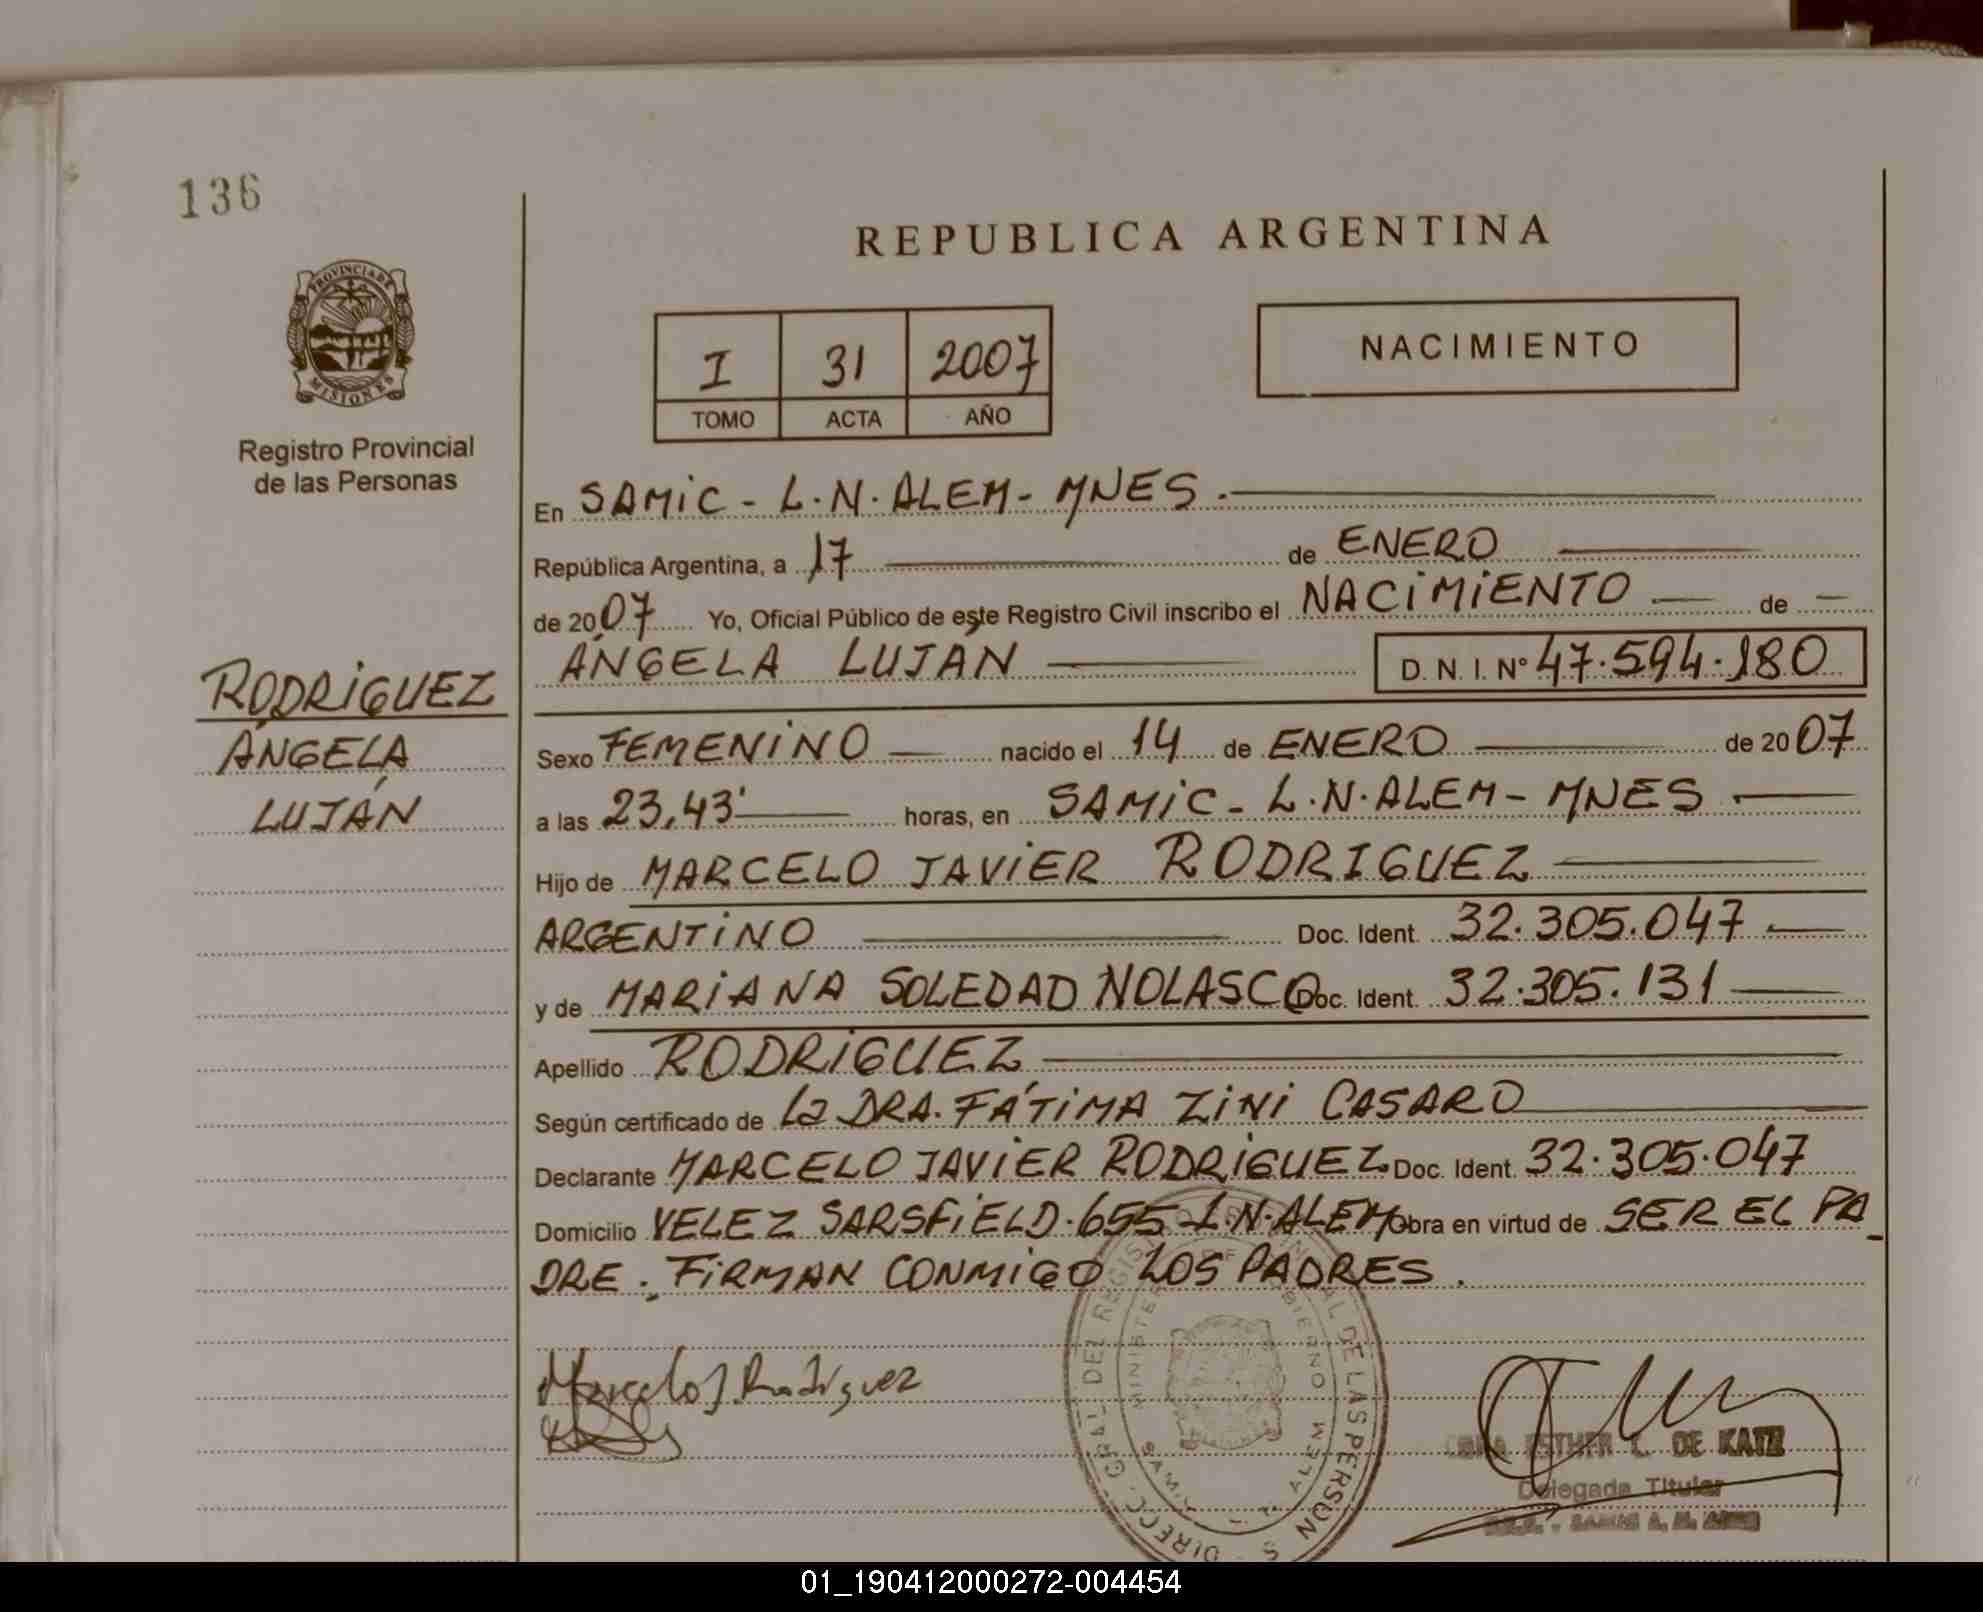 136
REPUBLICA ARGENTINA
PROVINCIA DE
MISIONES
Registro Provincial
de las Personas
I 31 2007
TOMO ACTA AÑO
NACIMIENTO
En SAMiC - L.N. ALEM - MNES.
República Argentina, a 17 de ENERO
de 2007 Yo, Oficial Público de este Registro Civil inscribo el NACiMiENTO de
ÁNGELA LUJÁN D. N. I. Nº 47.594.180
RODRiGUEZ
ÁNGELA
LUJÁN
Sexo FEMENiNO nacido el 14 de ENERO de 2007
a las 23,43' horas, en SAMiC - L.N. ALEM - MNES.
Hijo de MARCELO JAViER RODRIGUEZ
ARGENTiNO Doc. Ident. 32.305.047
y de MARiANA SOLEDAD NOLASCO Doc. Ident. 32.305.131
Apellido RODRiGUEZ
Según certificado de La DRA. FÁTiMA ZiNi CASARO
Declarante MARCELO JAViER RODRiGUEZ Doc. Ident. 32.305.047
Domicilio VELEZ SARSFiELD. 655 - L.N. ALEM Obra en virtud de SER EL PA_
DRE. FiRMAN CONMiGO LOS PADRES.
Marcelo J. Rodriguez
DIRECC. GRAL. DEL REGISTRO PROVINCIAL DE LAS PERSONAS
ESTHER L. DE KATZ
Delegada Titular
01_190412000272-004454